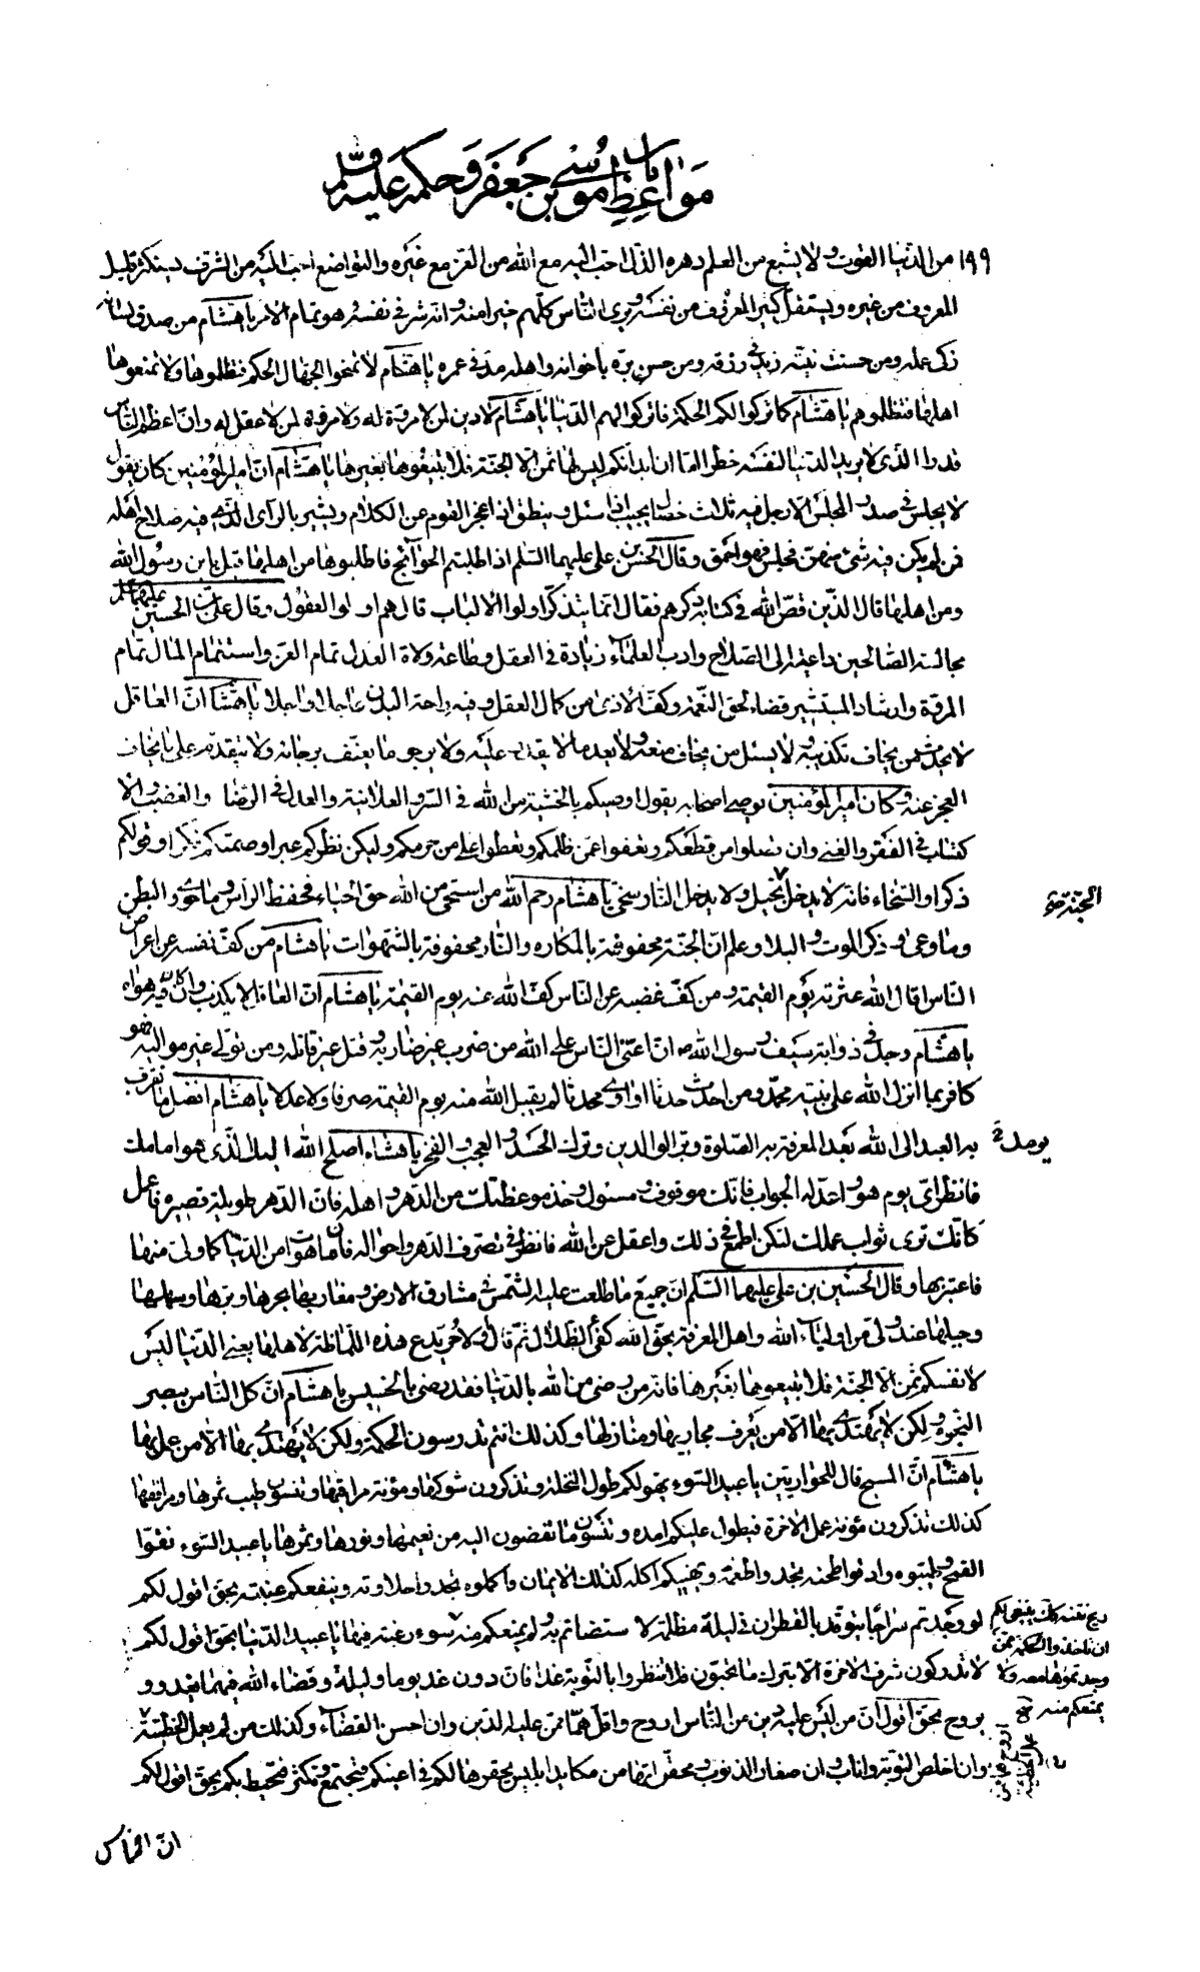 باب
مواعظ موسى بن جعفر وحكمه عليه وسلم
١٩٩ من الدنيا القوت ولا يشبع من العلم دهره الذل احب اليه مع الله من العز مع غيره والتواضع احب اليه من الشرف يستكثر قليل
المعروف من غيره ويستقل كثير المعروف من نفسه ويرى الناس كلهم خيرا منه وانه شرهم في نفسه وهو تمام الامر يا هشام من صدق لسانه
زكى عمله ومن حسنت نيته زيد في رزقه ومن حسن بره باخوانه واهله مد في عمره يا هشام لا تمنحوا الجهال الحكمة فتظلموها ولا تمنعوها
اهلها فتظلموهم يا هشام كما تركوا لكم الحكمة فاتركوا لهم الدنيا يا هشام لا دين لمن لا مروة له ولا مروة لمن لا عقل له وان اعظم الناس
قدرا الذي لا يرى الدنيا لنفسه خطرا اما ان ابدانكم ليس لها ثمن الا الجنة فلا تبيعوها بغيرها يا هشام ان امير المؤمنين كان يقول
لا يجلس في صدر المجلس الا رجل فيه ثلاث خصال يجيب اذا سئل وينطق اذا عجز القوم عن الكلام ويشير بالرأى الذي فيه صلاح اهله
فمن لم يكن فيه شئ منهن فجلس فهو احمق وقال الحسن بن علي عليهما السلم اذا طلبتم الحوائج فاطلبوها من اهلها قيل يابن رسول الله
ومن اهلها قال الذين قص الله في كتابه وذكرهم فقال انما يتذكر اولوا الالباب قال هم اولو العقول وقال علي بن الحسين عليهما السلم
مجالسة الصالحين داعية الى الصلاح وادب العلماء زيادة في العقل وطاعة ولاة العدل تمام العز واستتمام المال تمام
المروة وارشاد المستشير قضاء لحق النعمة وكف الاذى من كمال العقل وفيه راحة البدن عاجلا واجلا يا هشام ان العاقل
لا يحدث من يخاف تكذيبه ولا يسئل من يخاف منعه ولا يعد ما لا يقدر عليه ولا يرجو ما يعنف برجائه ولا يتقدم على ما يخاف
العجز عنه وكان امير المؤمنين يوصي اصحابه يقول اوصيكم بالخشية من الله في السر والعلانية والعدل في الرضا والغضب والا
كتساب في الفقر والغنى وان تصلوا من قطعكم وتعفوا عمن ظلمكم وتعطوا على من حرمكم وليكن نظركم عبرا وصمتكم فكرا وقولكم
ذكرا والسخاء فانه لا يدخل بخيل ولا يدخل النار سخي يا هشام رحم الله من استحيى من الله حق الحياء فحفظ الرأس وما حوى والبطن
الجنة صح
وما وعى وذكر الموت والبلا وعلم ان الجنة محفوفة بالمكاره والنار محفوفة بالشهوات يا هشام من كف نفسه عن اعراض
الناس اقال الله عثرته يوم القيمة ومن كف غضبه عن الناس كف الله عنه يوم القيمة يا هشام ان العاقل لا يكذب وان كان فيه هواه
يا هشام وجد في ذوابة سيف رسول الله ص ان اعتى الناس على الله من ضرب غير ضاربه وقتل غير قاتله ومن تولى غير مواليه فهو
كافر بما انزل الله على نبيه محمد ومن احدث حدثا او اوى محدثا لم يقبل الله منه يوم القيمة صرفا ولا عدلا يا هشام افضل ما تقرب
به العبد الى الله بعد المعرفة به الصلوة وبر الوالدين وترك الحسد والعجب والفخر يا هشام اصلح الله اليك الذي هو امامك
يومك
فانظر اي يوم هو واعد له الجواب فانك موقوف ومسئول وخذ موعظتك من الدهر واهله فان الدهر طويلة قصيرة فاعمل
كانك ترى ثواب عملك لتكن اطمع في ذلك واعقل عن الله فانظر في تصرف الدهر واحواله فان ما هو ات من الدنيا كما ولى منها
فاعتبر بها وقال الحسين بن علي عليهما السلم ان جميع ما طلعت عليه الشمس في مشارق الارض ومغاربها بحرها وبرها وسهلها
وجبلها عند ولى من اولياء الله واهل المعرفة بحق الله كفئ الظلال ثم قال اولا حر يدع هذه اللماظة لاهلها يعني الدنيا ليس
لانفسكم ثمن الا الجنة فلا تبيعوها بغيرها فانه من رضى من الله بالدنيا فقد رضى بالخسيس يا هشام ان كل الناس يبصر
النجوم ولكن لا يهتدي بها الا من يعرف مجاريها ومنازلها وكذلك انتم تدرسون الحكمة ولكن لا يهتدي بها الا من عمل بها
يا هشام ان المسيح قال للحواريين يا عبيد السوء يهولكم طول النخلة وتذكرون شوكها ومؤنة مراقيها وتنسون طيب ثمرها ومرافقها
كذلك تذكرون مؤنة عمل الاخرة فيطول عليكم امده وتنسون ما تفضون اليه من نعيمها ونورها وثمرها يا عبيد السوء نقوا
القمح وطيبوه وادقوا طحنه تجدوا طعمه ويهنيكم اكله كذلك الايمان واكملوه تجدوا حلاوته وينفعكم غبه بحق اقول لكم
لو وجدتم سراجا يتوقد بالقطران في ليلة مظلمة لاستضاتم به ولم يمنعكم منه سوء رغبة فيها يا عبيد الدنيا بحق اقول لكم
ريح نتنه كان ينبغى لكم
ان تاخذوا الحكمة ممن
وجدتموها معه ولا
يمنعكم منه صح
لا تدركون شرف الاخرة الا بترك ما تحبون فلا تنظروا بالتوبة غدا فان دون غد يوما وليلة وقضاء الله فيهما يغدو و
يروح بحق اقول ان من ليس عليه دين من الناس اروح واقل هما ممن عليه الدين وان احسن القضاء وكذلك من لم يعمل الخطيئة
وان اخلص التوبة واناب وان صغار الذنوب ومحقراتها من مكايد ابليس يحقرها لكم في اعينكم فتجتمع وتكثر فتحيط بكم بحق اقول لكم
ان الناس